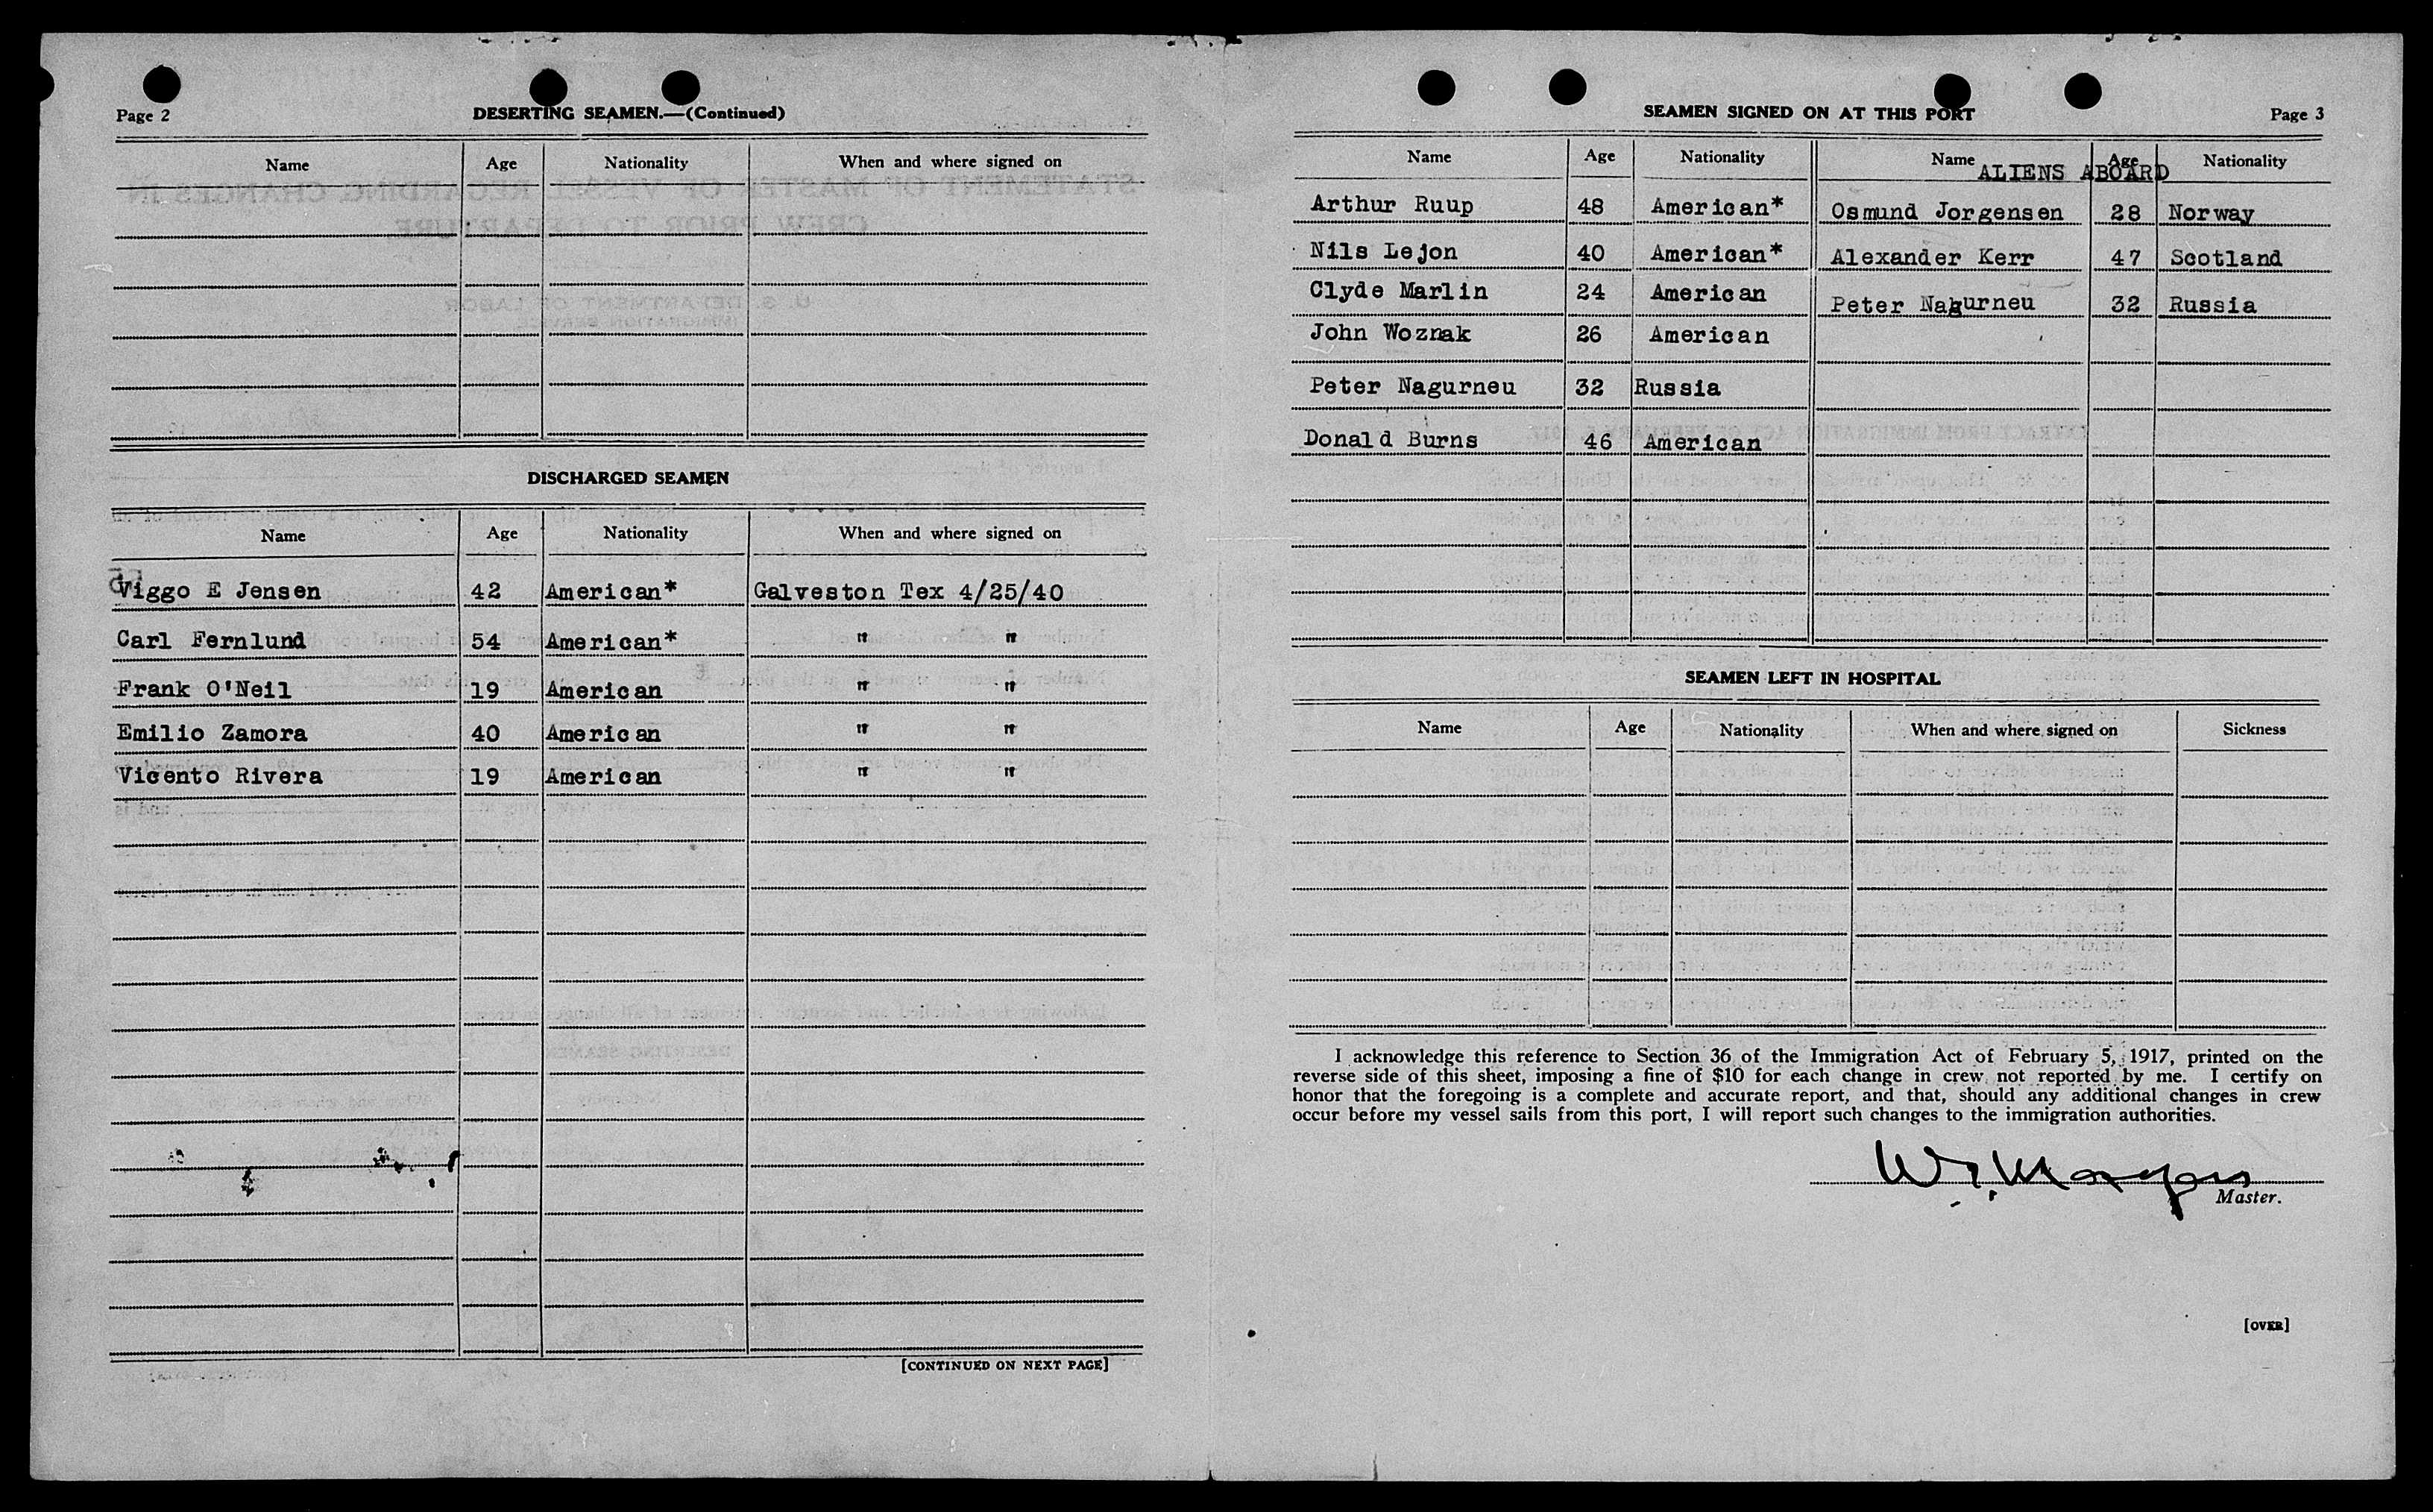 Page 2
DESERTING SEAMEN.—(Continued)
Name Age Nationality When and where signed on
DISCHARGED SEAMEN
Name Age Nationality When and where signed on
Viggo E Jensen 42 American* Galveston Tex 4/25/40
Carl Fernlund 54 American* " "
Frank O'Neil 19 American " "
Emilio Zamora 40 American " "
Vicento Rivera 19 American " "
[CONTINUED ON NEXT PAGE]
SEAMEN SIGNED ON AT THIS PORT
Page 3
Name Age Nationality Name Age Nationality
ALIENS ABOARD
Arthur Ruup 48 American* Osmund Jorgensen 28 Norway
Nils Lejon 40 American* Alexander Kerr 47 Scotland
Clyde Marlin 24 American Peter Nagurneu 32 Russia
John Woznak 26 American
Peter Nagurneu 32 Russia
Donald Burns 46 American
SEAMEN LEFT IN HOSPITAL
Name Age Nationality When and where signed on Sickness
I acknowledge this reference to Section 36 of the Immigration Act of February 5, 1917, printed on the
reverse side of this sheet, imposing a fine of $10 for each change in crew not reported by me. I certify on
honor that the foregoing is a complete and accurate report, and that, should any additional changes in crew
occur before my vessel sails from this port, I will report such changes to the immigration authorities.
Master.
[OVER]